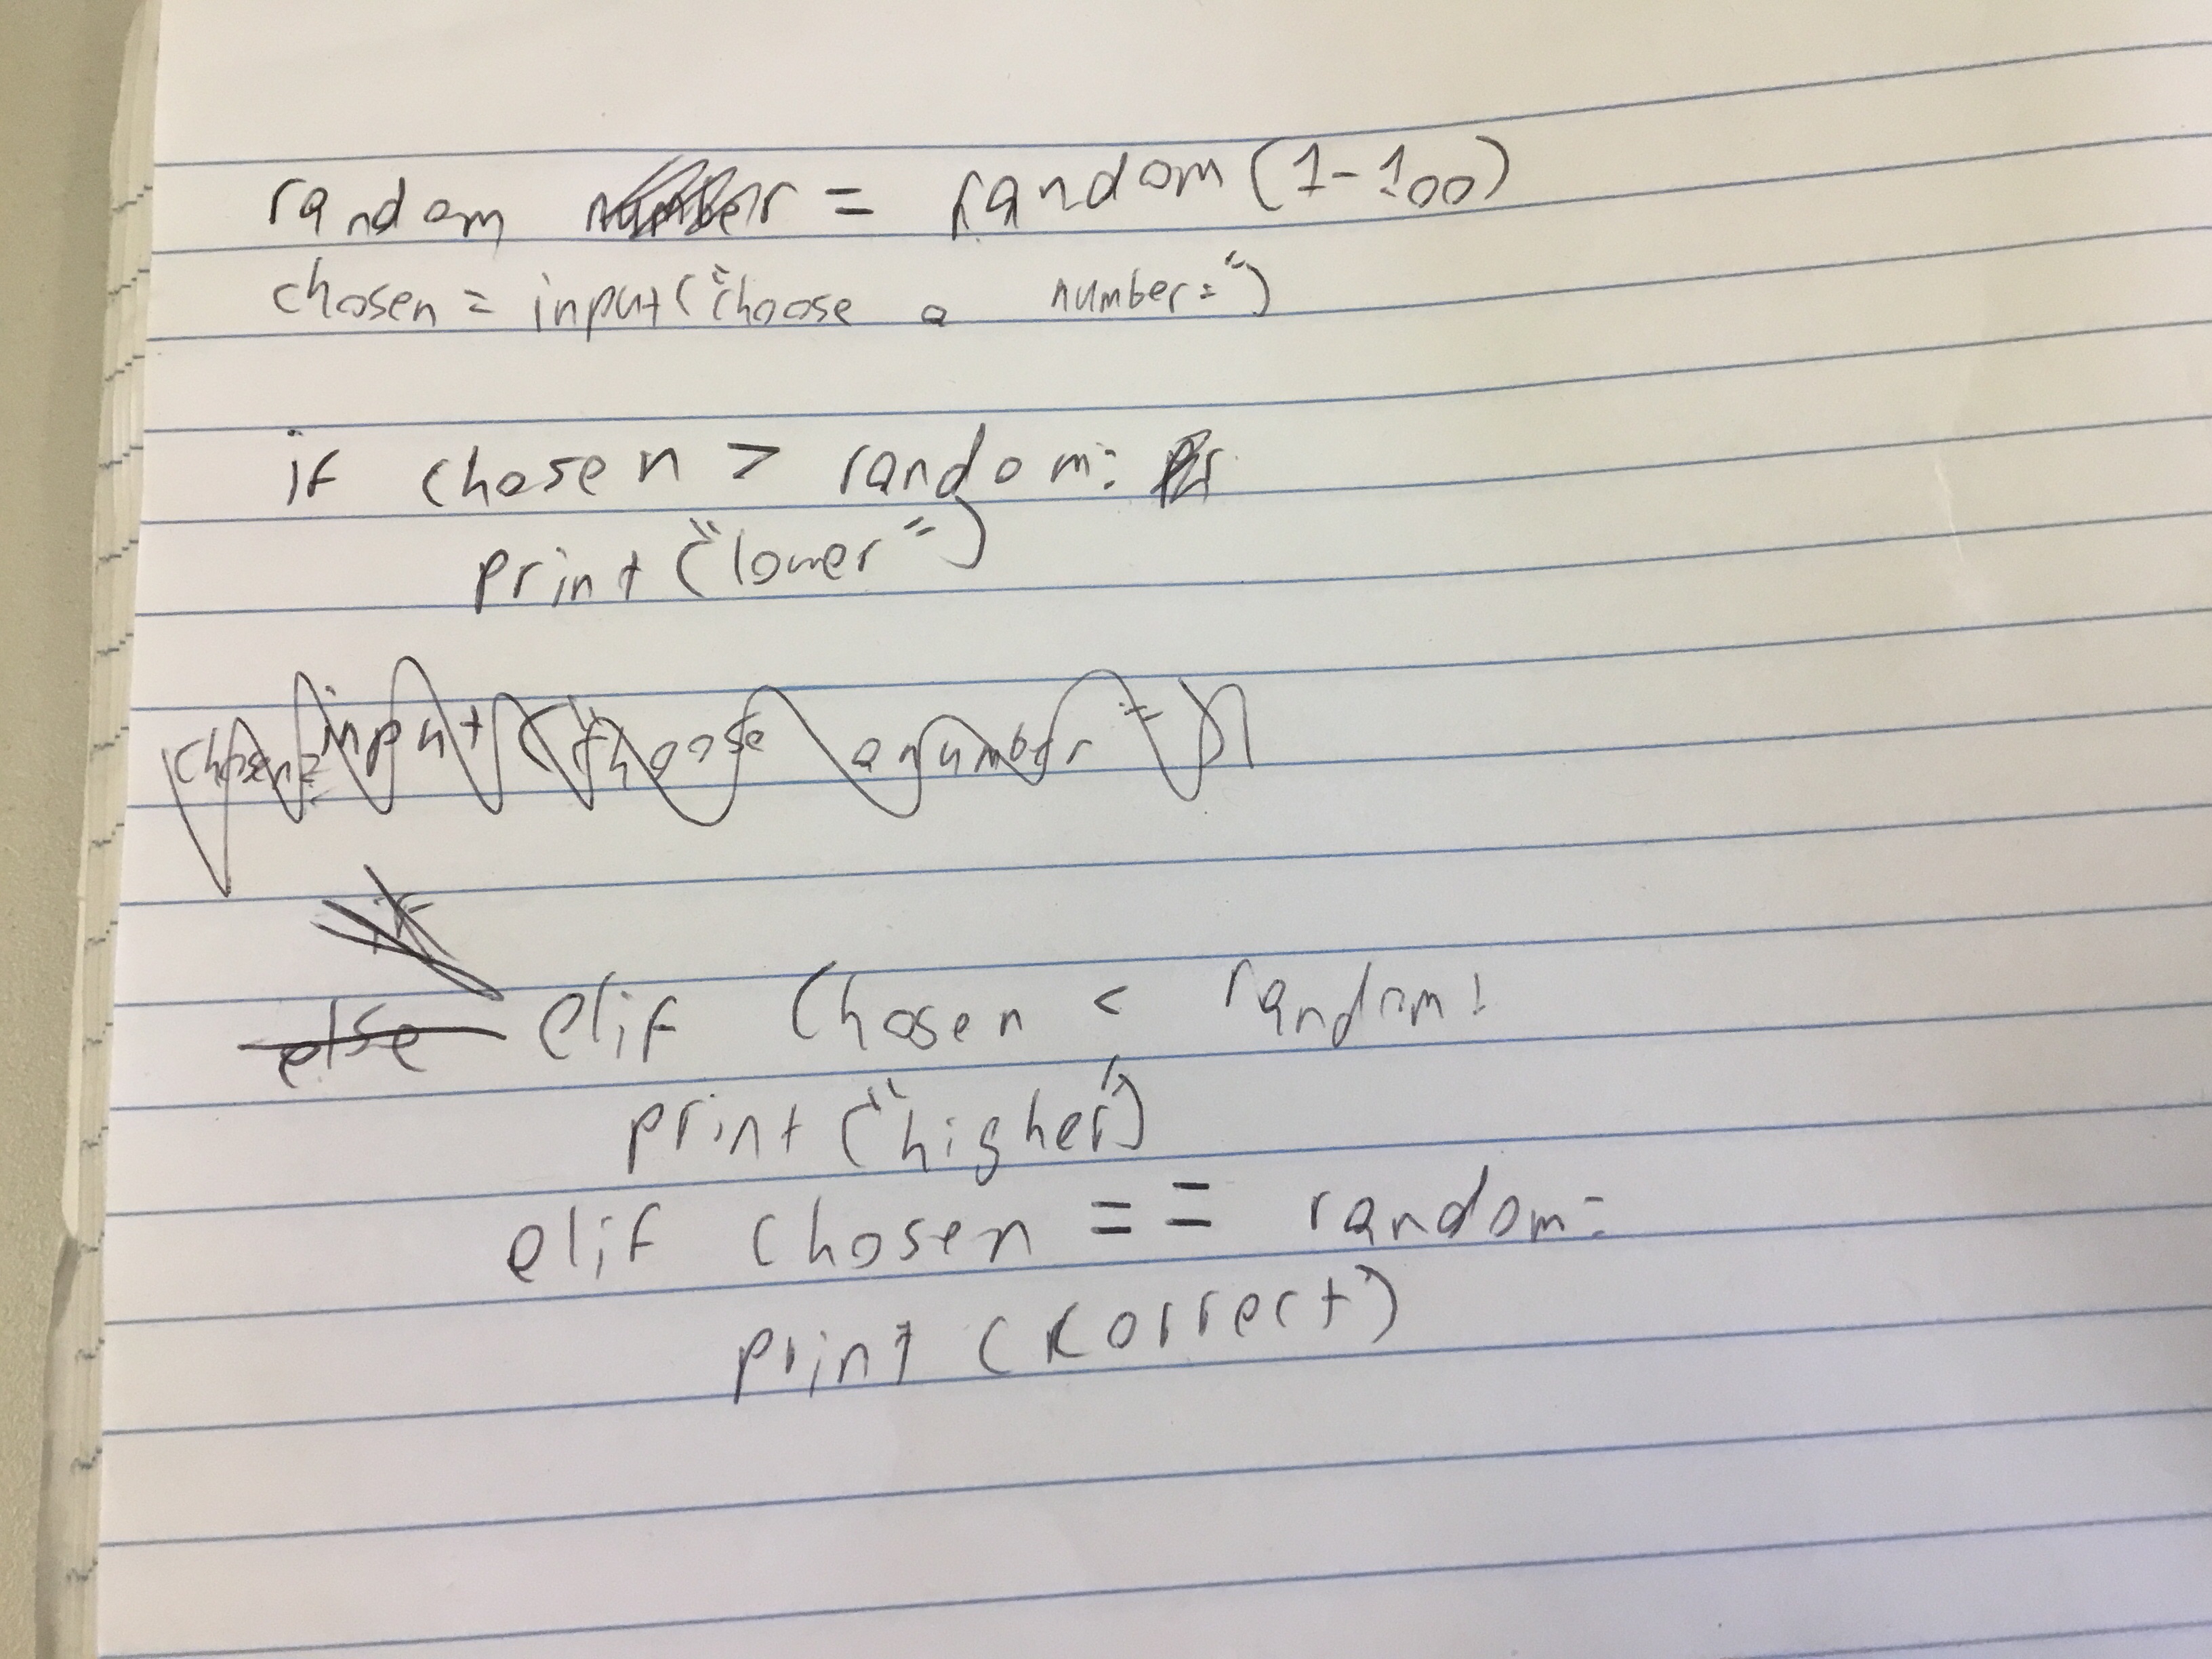 random number = random (1-100)
chosen = input("choose a number=")
if chosen > random:
print ("lower")
chosen= input ("choose a number =")
if
else elif chosen < random:
print ("higher")
elif chosen == random:
print (korrect)